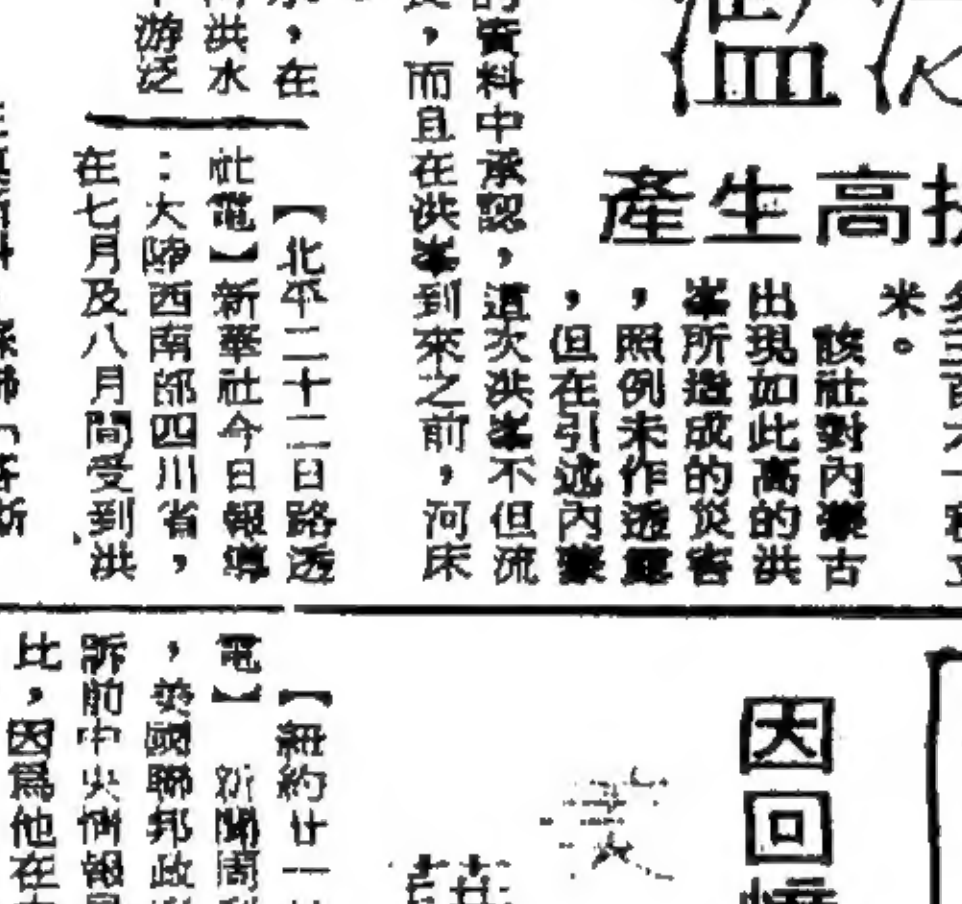 濫
產生高
米。
該社對內蒙古
出現如此高的洪
峯所造成的災害
,照例未作透露
,但在引述內蒙
的資料中承認,這次洪峯不但流
,而且在洪峯到來之前,河床
,在
洪水
游泛
【北平二十二日路透
社電】新華社今日報導
:大陸西南部四川省,
在七月及八月間受到洪
因回
【紐約廿一
電】 新聞周
,英國聯邦政
訴前中央情報
比,因爲他在